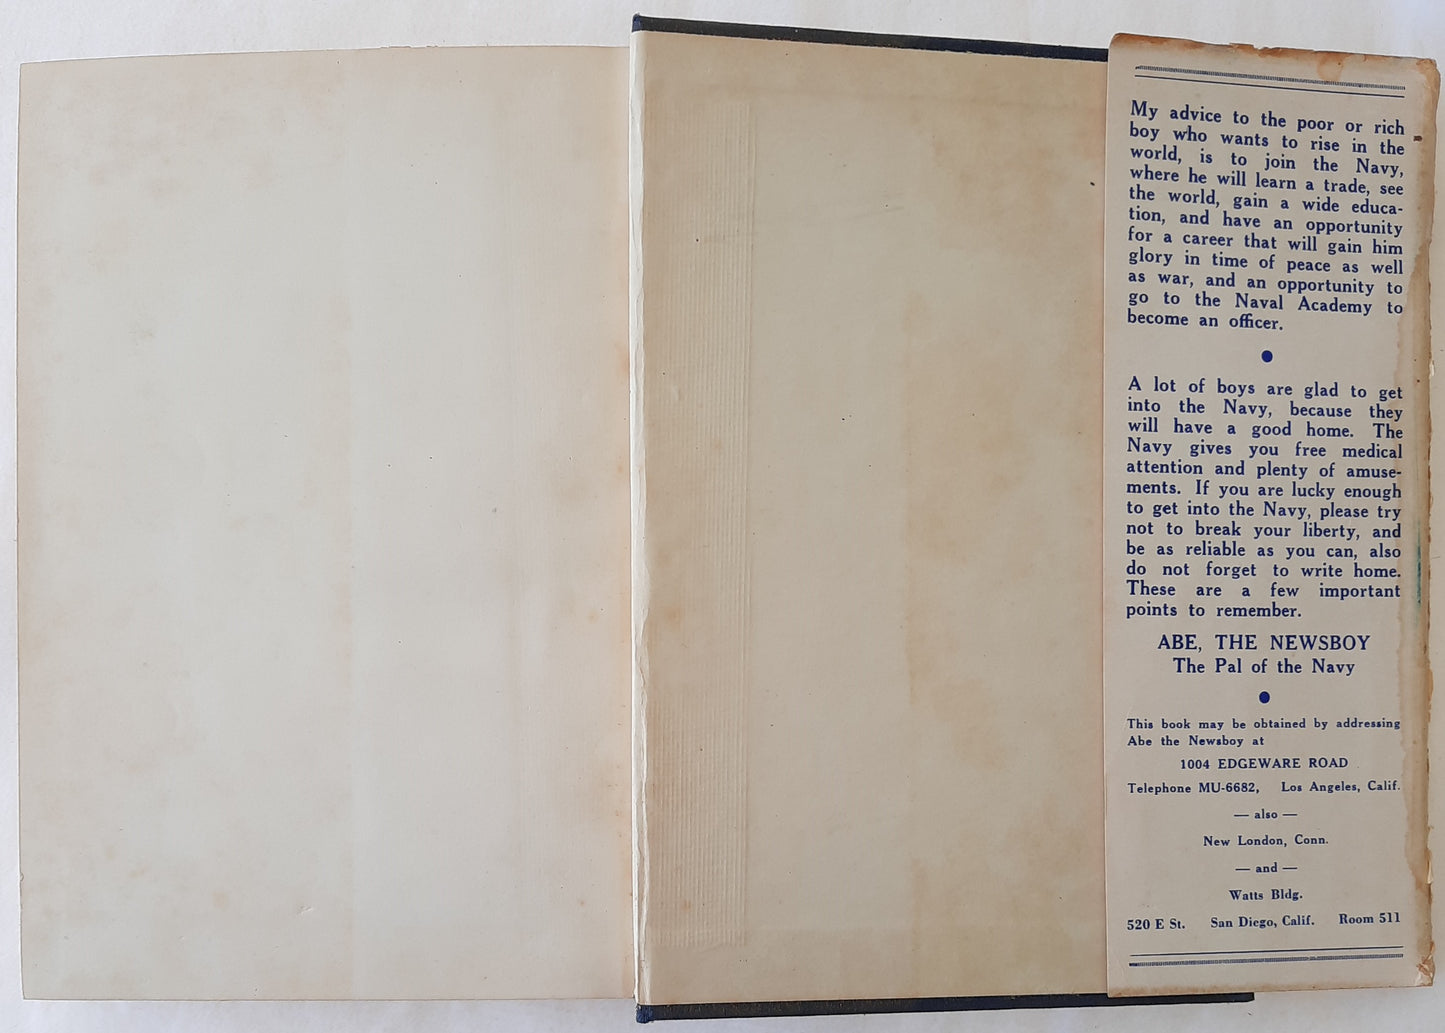 My advice to the poor or rich
boy who wants to rise in the
world, is to join the Navy,
where he will learn a trade, see
the world, gain a wide educa-
tion, and have an opportunity
for a career that will gain him
glory in time of peace as well
as war, and an opportunity to
go to the Naval Academy to
become an officer.
A lot of boys are glad to get
into the Navy, because they
will have a good home. The
Navy gives you free medical
attention and plenty of amuse-
ments. If you are lucky enough
to get into the Navy, please try
not to break your liberty, and
be as reliable as you can, also
do not forget to write home.
These are a few important
points to remember.
ABE, THE NEWSBOY
The Pal of the Navy
This book may be obtained by addressing
Abe the Newsboy at
1004 EDGEWARE ROAD
Telephone MU-6682, Los Angeles, Calif.
— also —
New London, Conn.
— and —
Watts Bldg.
520 E St. San Diego, Calif. Room 511